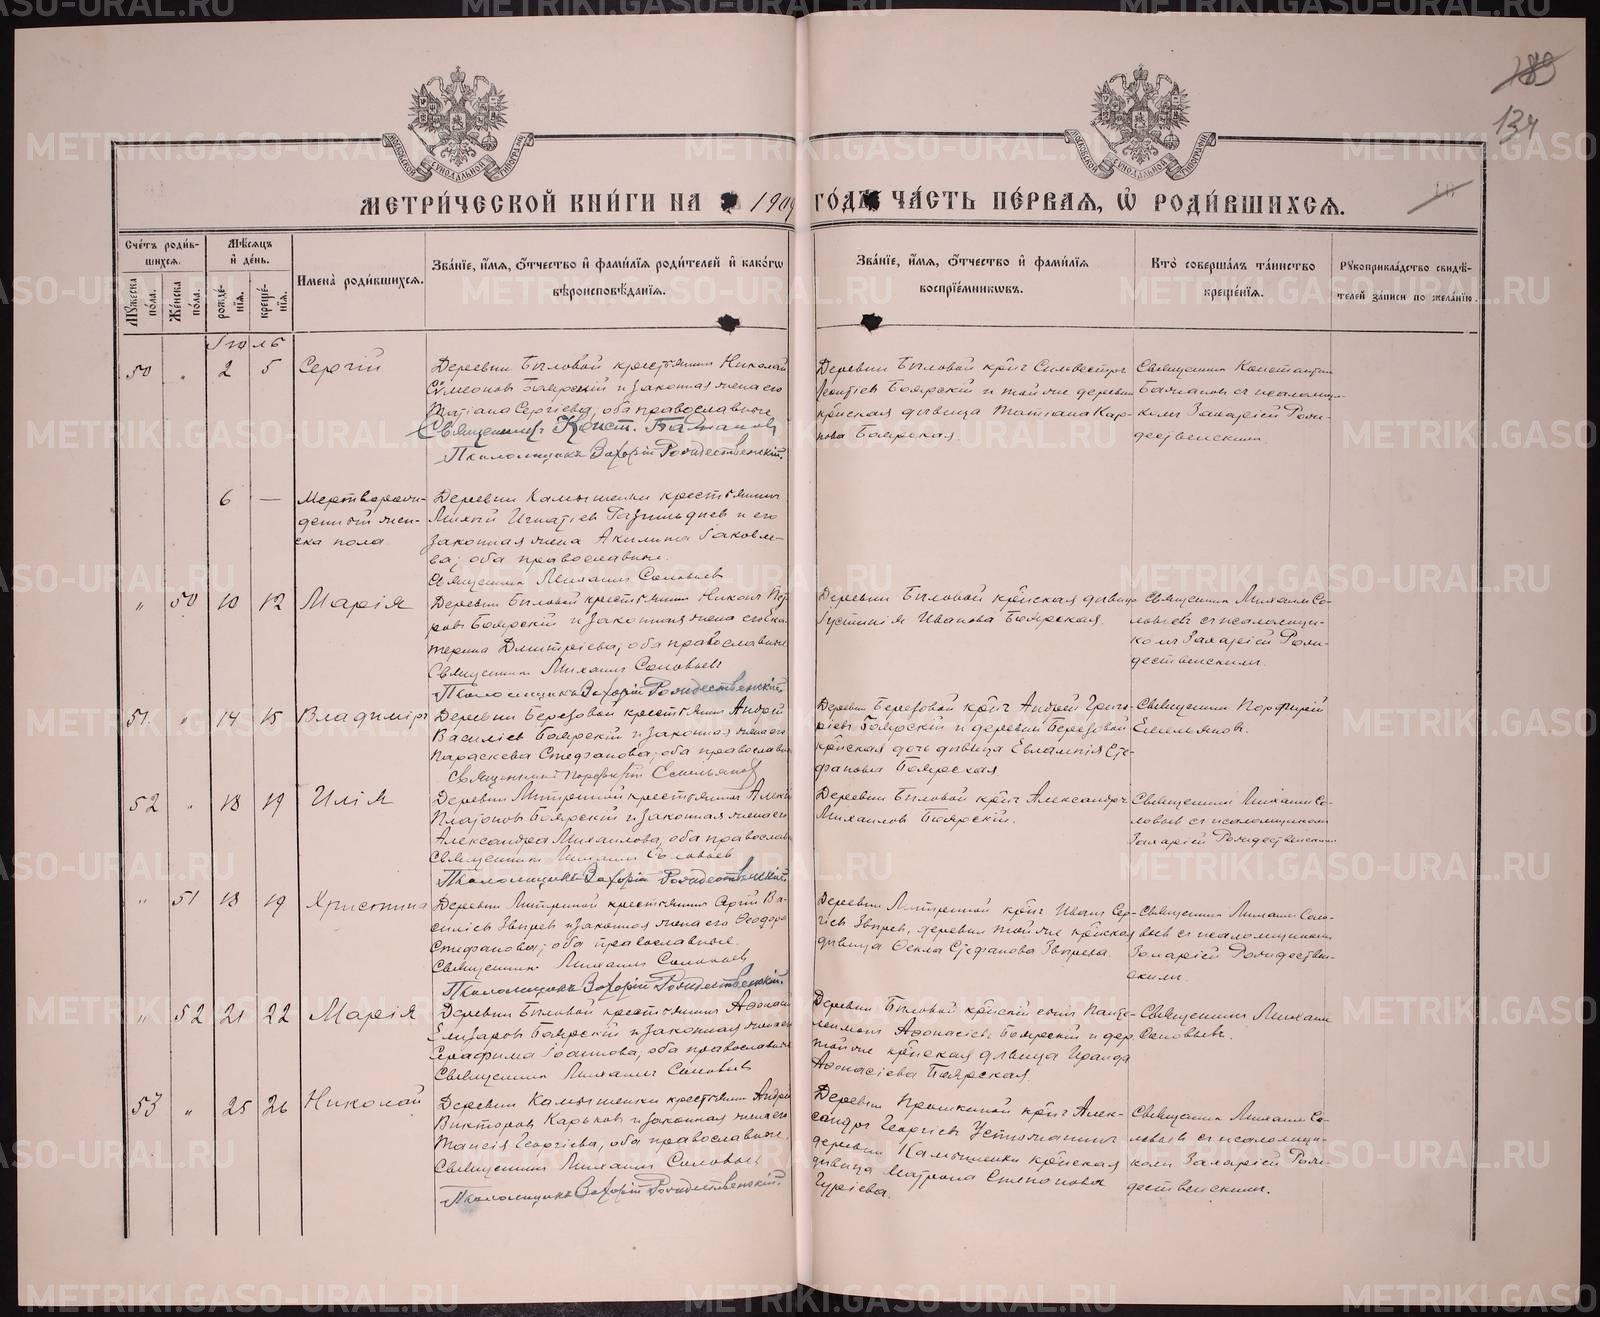 189
134
МЕТРИ́ЧЕСКОЙ КНИ́ГИ НА 1909 ГО́ДЪ ЧА́СТЬ ПЕ́РВАЯ, Ѽ РОДИ́ВШИХСЯ.
Сче́тъ роди́в-
шихся.
Мꙋ́жеска по́ла.
Же́нска по́ла.
Мѣ́сяцъ
и҆ де́нь.
рожде́-
нїя.
креще́-
нїя.
И҆мена̀ роди́вшихся.
Зва́нїе, и҆́мя, ѻ҆́тчество и҆ фами́лїя роди́телей и҆ како́гѡ
вѣроисповѣ́данїя.
Зва́нїе, и҆́мя, ѻ҆́тчество и҆ фами́лїя
воспрїе́мникѡвъ.
Кто̀ соверша́лъ та́инство
креще́нїя.
Рꙋкоприкла́дство свидѣ́-
телей за́писи по жела́нїю.
Іюль
50 " 2 5 Сергій
Деревни Быловой крестьянинъ Николай
Сѵмеоновъ Боярскій и законная жена его
Татіана Сергіева, оба православные
Священникъ Конст. Бажановъ
Псаломщикъ Захарій Рождественскій.
Деревни Быловой кр̃нъ Сильвестръ
Леонтіевъ Боярскій и той же деревни
кр̃нская дѣвица Татіана Кар-
пова Боярская.
Священникъ Константинъ
Бажановъ съ псаломщи-
комъ Захаріей Рож-
дественскимъ.
6 — Мертворож-
денный жен-
ска пола
Деревни Камышенки крестьянинъ
Игнатіев и его
законная жена Акилина Іаковле-
ва; оба православные.
Священникъ Михаилъ Соловьевъ
" 50 10 12 Марія
Деревни Быловой крестьянинъ Никонъ Пет-
ровъ Боярскій и законная жена его Ека-
терина Дмитріева, оба православные
Священникъ Михаилъ Соловьевъ
Псаломщикъ Захарій Рождественскій.
Деревни Быловой кр̃нская дѣвица
Іустинія Иванова Боярская.
Священникъ Михаилъ Со-
ловьевъ съ псаломщи-
комъ Захаріей Рож-
дественскимъ.
51 " 14 15 Владиміръ
Деревни Березовой крестьянинъ Андрей
Василіевъ Боярскій и законная жена его
Параскева Стефанова; оба православные
Священникъ Порфирій Емельяновъ
Деревни Березовой кр̃нъ Андрей Григо-
ріевъ Боярскій и деревни Березовой
кр̃нская дочь дѣвица Евлампія Сте-
фанова Боярская
Священникъ Порфирій
Емельяновъ.
52 " 18 19 Илія
Деревни Митрѣниной крестьянинъ Алексій
Платоновъ Боярскій и законная жена его
Александра Михаилова, оба православные
Священникъ Михаилъ Соловьевъ
Псаломщикъ Захарій Рождественскій
Деревни Быловой кр̃нъ Александръ
Михаиловъ Боярскій.
Священникъ Михаилъ Со-
ловьевъ съ псаломщикомъ
Захаріей Рождественскимъ
" 51 18 19 Христина
Деревни Митрѣниной крестьянинъ Сергій Ва-
силіевъ Звѣревъ и законная жена его Ѳеодора
Стефанова; оба православные.
Священникъ Михаилъ Соловьевъ
Псаломщикъ Захарій Рождественскій.
Деревни Митрѣниной кр̃нъ Иванъ Сер-
гіевъ Звѣревъ, деревни той же кр̃нская
дѣвица Ѳекла Стефанова Звѣрева.
Священникъ Михаилъ Соло-
вьевъ съ псаломщикомъ
Захаріей Рождествен-
скимъ.
" 52 21 22 Марія
Деревни Быловой крестьянинъ Аѳонасій
Елизаровъ Боярскій и законная жена его
Серафима Іоаннова, оба православные
Священникъ Михаилъ Соловьевъ
Деревни Быловой кр̃нскій сынъ Панте-
леимонъ Аѳонасіевъ Боярскій и дер.
той же кр̃нская дѣвица Ираида
Аѳонасіева Боярская.
Священникъ Михаилъ
Соловьевъ.
53 " 25 26 Николай
Деревни Камышенки крестьянинъ Андрей
Викторовъ Карьковъ и законная жена его
Таисія Георгіева, оба православные,
Священникъ Михаилъ Соловьевъ
Псаломщикъ Захарій Рождественскій.
Деревни Прошкиной кр̃нъ Алек-
сандръ Георгіевъ Устюжанинъ
деревни Камышенки кр̃нская
дѣвица Матрона Степанова
Гуріева.
Священникъ Михаилъ Со-
ловьевъ съ псаломщи-
комъ Захаріей Рож-
дественскимъ.